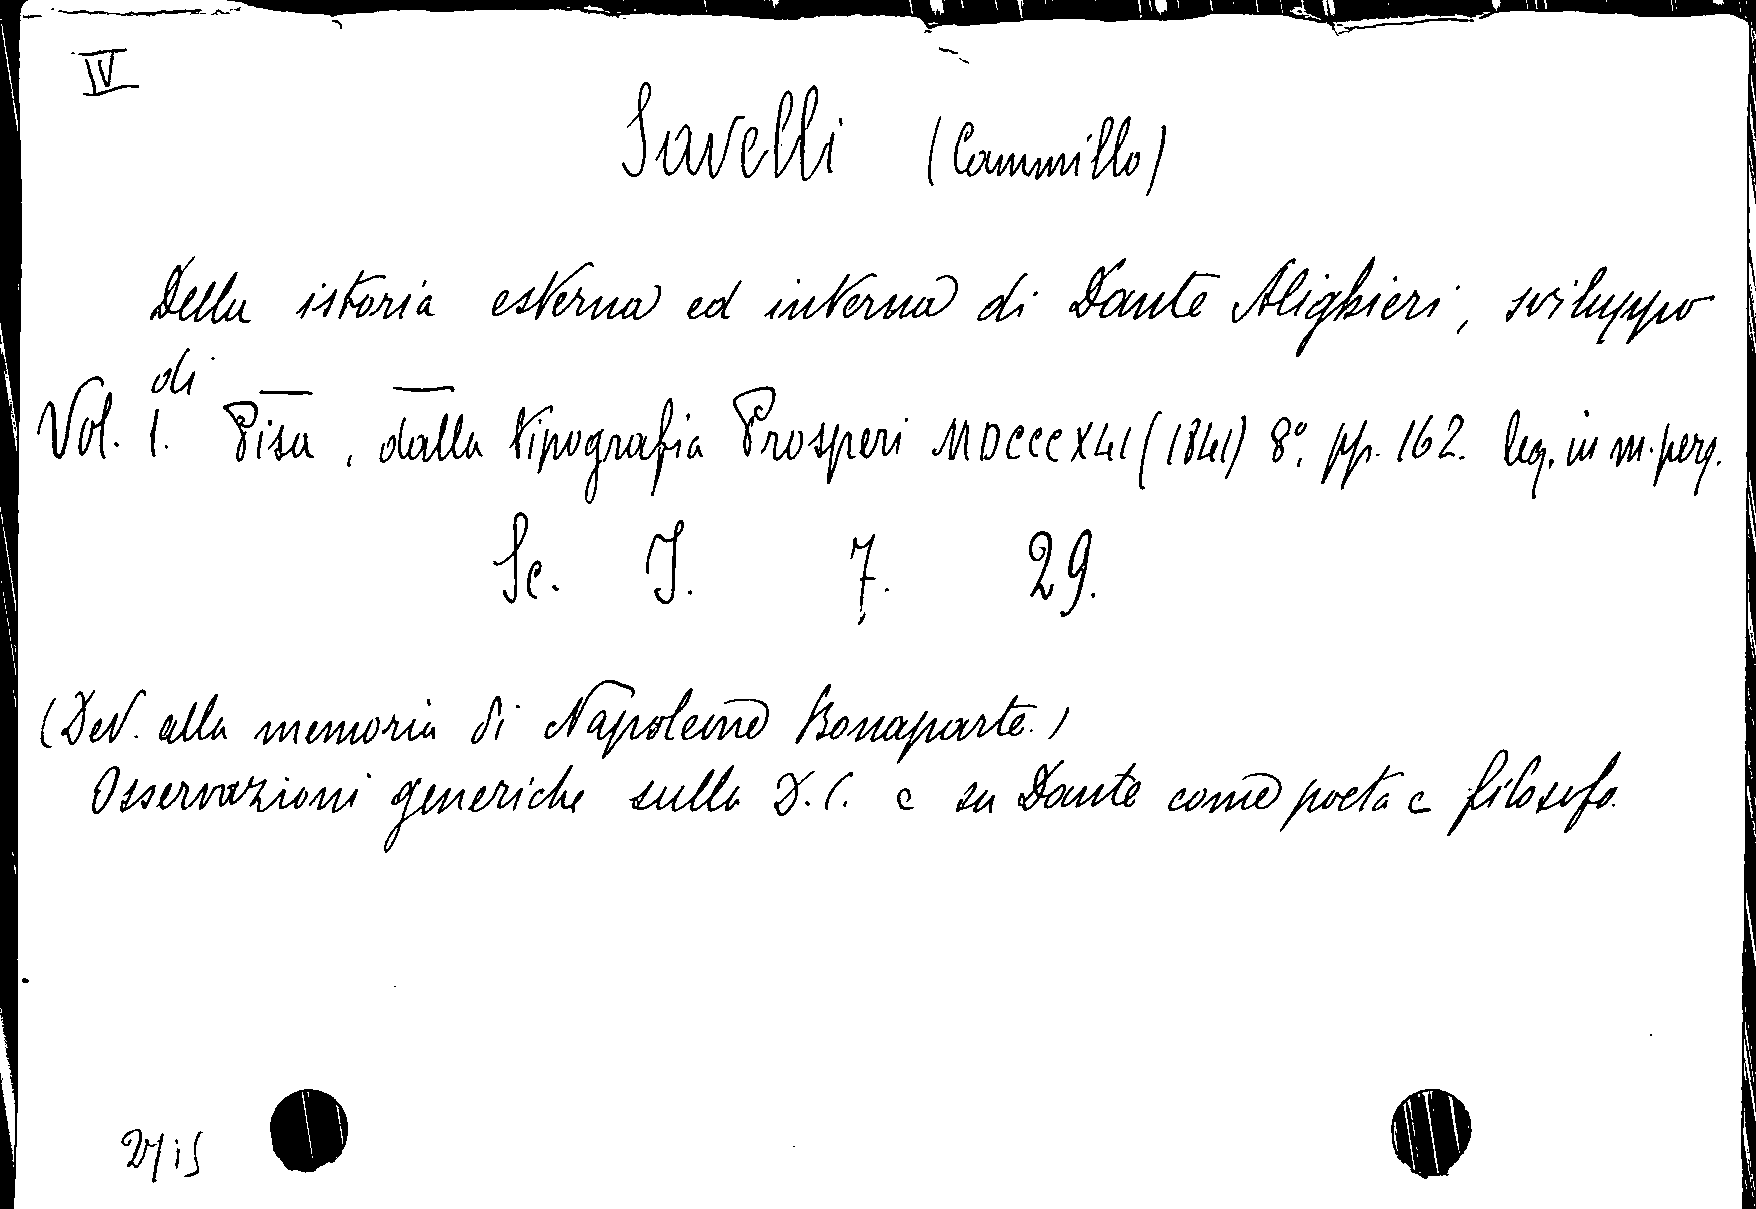 IV
Savelli (Cammillo)
Della istoria esterna ed interna di Dante Alighieri, sviluppo
di
Vol. 1. Pisa, dalla tipografia Prosperi MDCCCXLI (1841) 8°. pp. 162. leg. in m. perg.
Sc. I. 7. 29.
(Ded. alla memoria di Napoleone Bonaparte.)
Osservazioni generiche sulla D.C. e su Dante come poeta e filosofo.